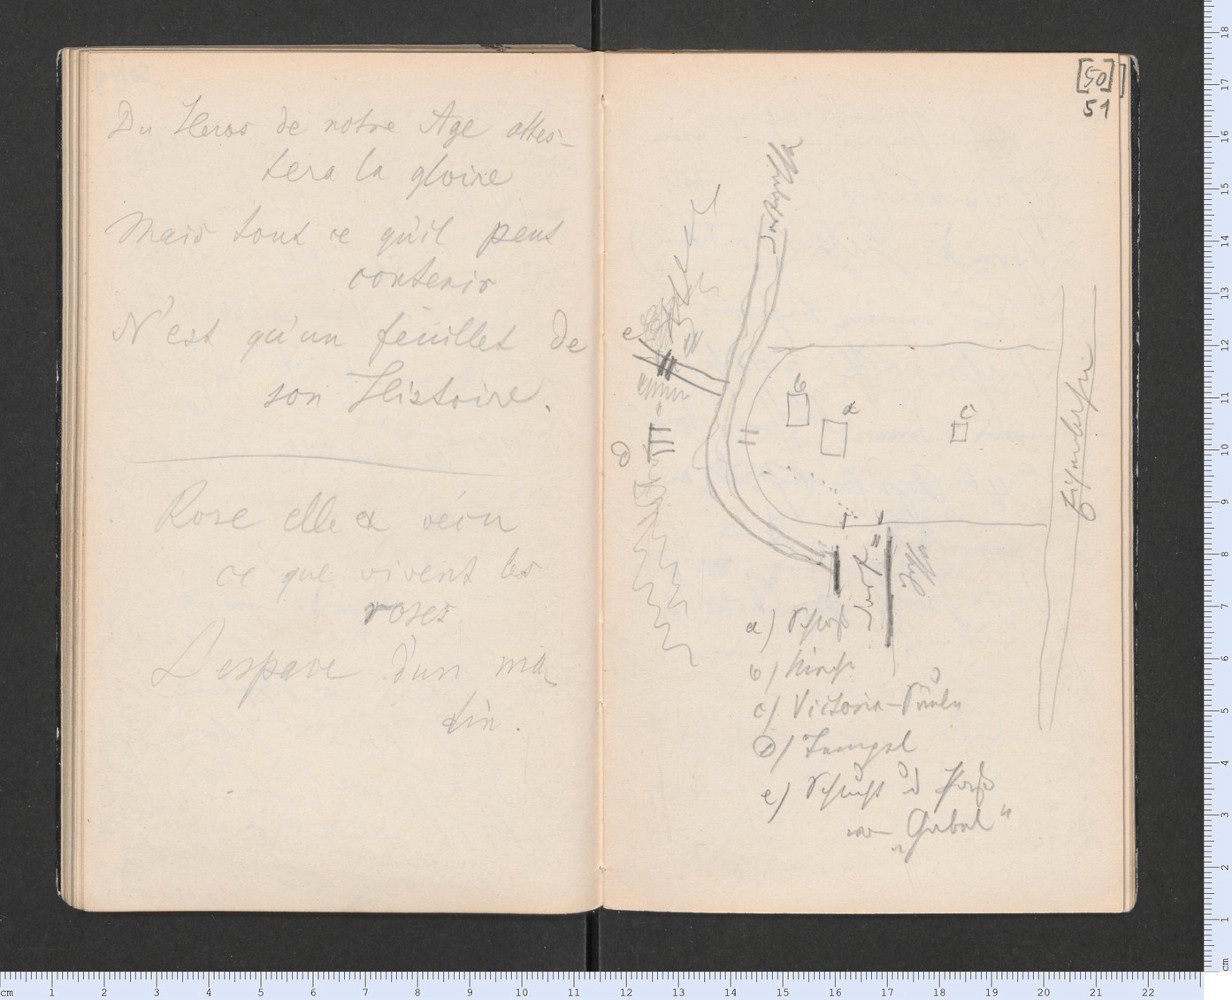 Du Heros de notre Age attes-
tera la gloire
Mais tout ce qu'il peut
contenir
N'est qu'un feuillet de
son Histoire.
Rose elle a vécu
ce que vivent les
roses
L'espace d'un ma
tin.
[50]
51
e
b
a
c
d
Dorf
a) Schloß
b) Kirche
c) Victoria-Säule
d) Tempel
e) Schlucht u
von "Gabel"